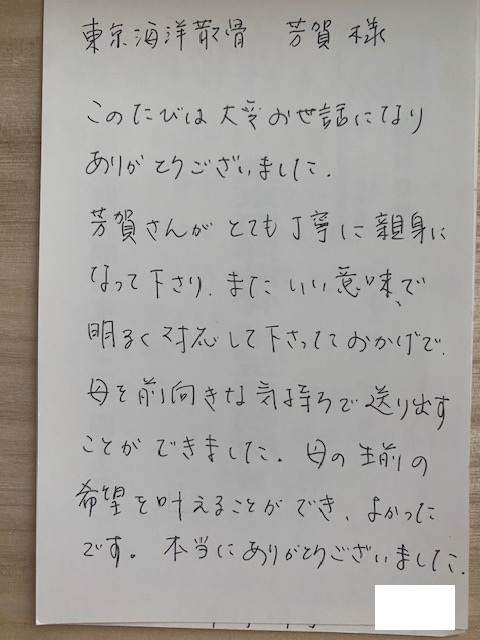 東京海洋散骨 芳賀様
このたびは大変お世話になり
ありがとうございました.
芳賀さんがとても丁寧に親身に
なって下さり、またいい意味で
明るく対応して下さったおかげで、
母を前向きな気持ちで送り出す
ことができました。母の生前の
希望を叶えることができ、よかった
です。本当にありがとうございました.